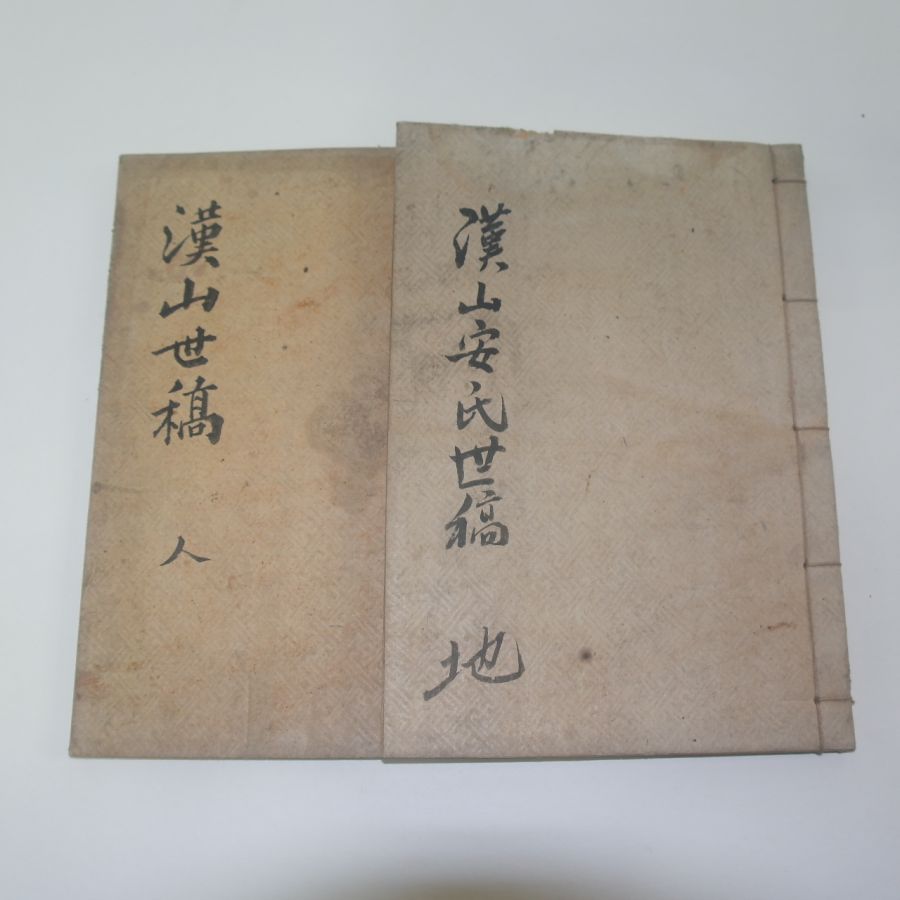 漢山世稿
人
漢山安氏世稿
地